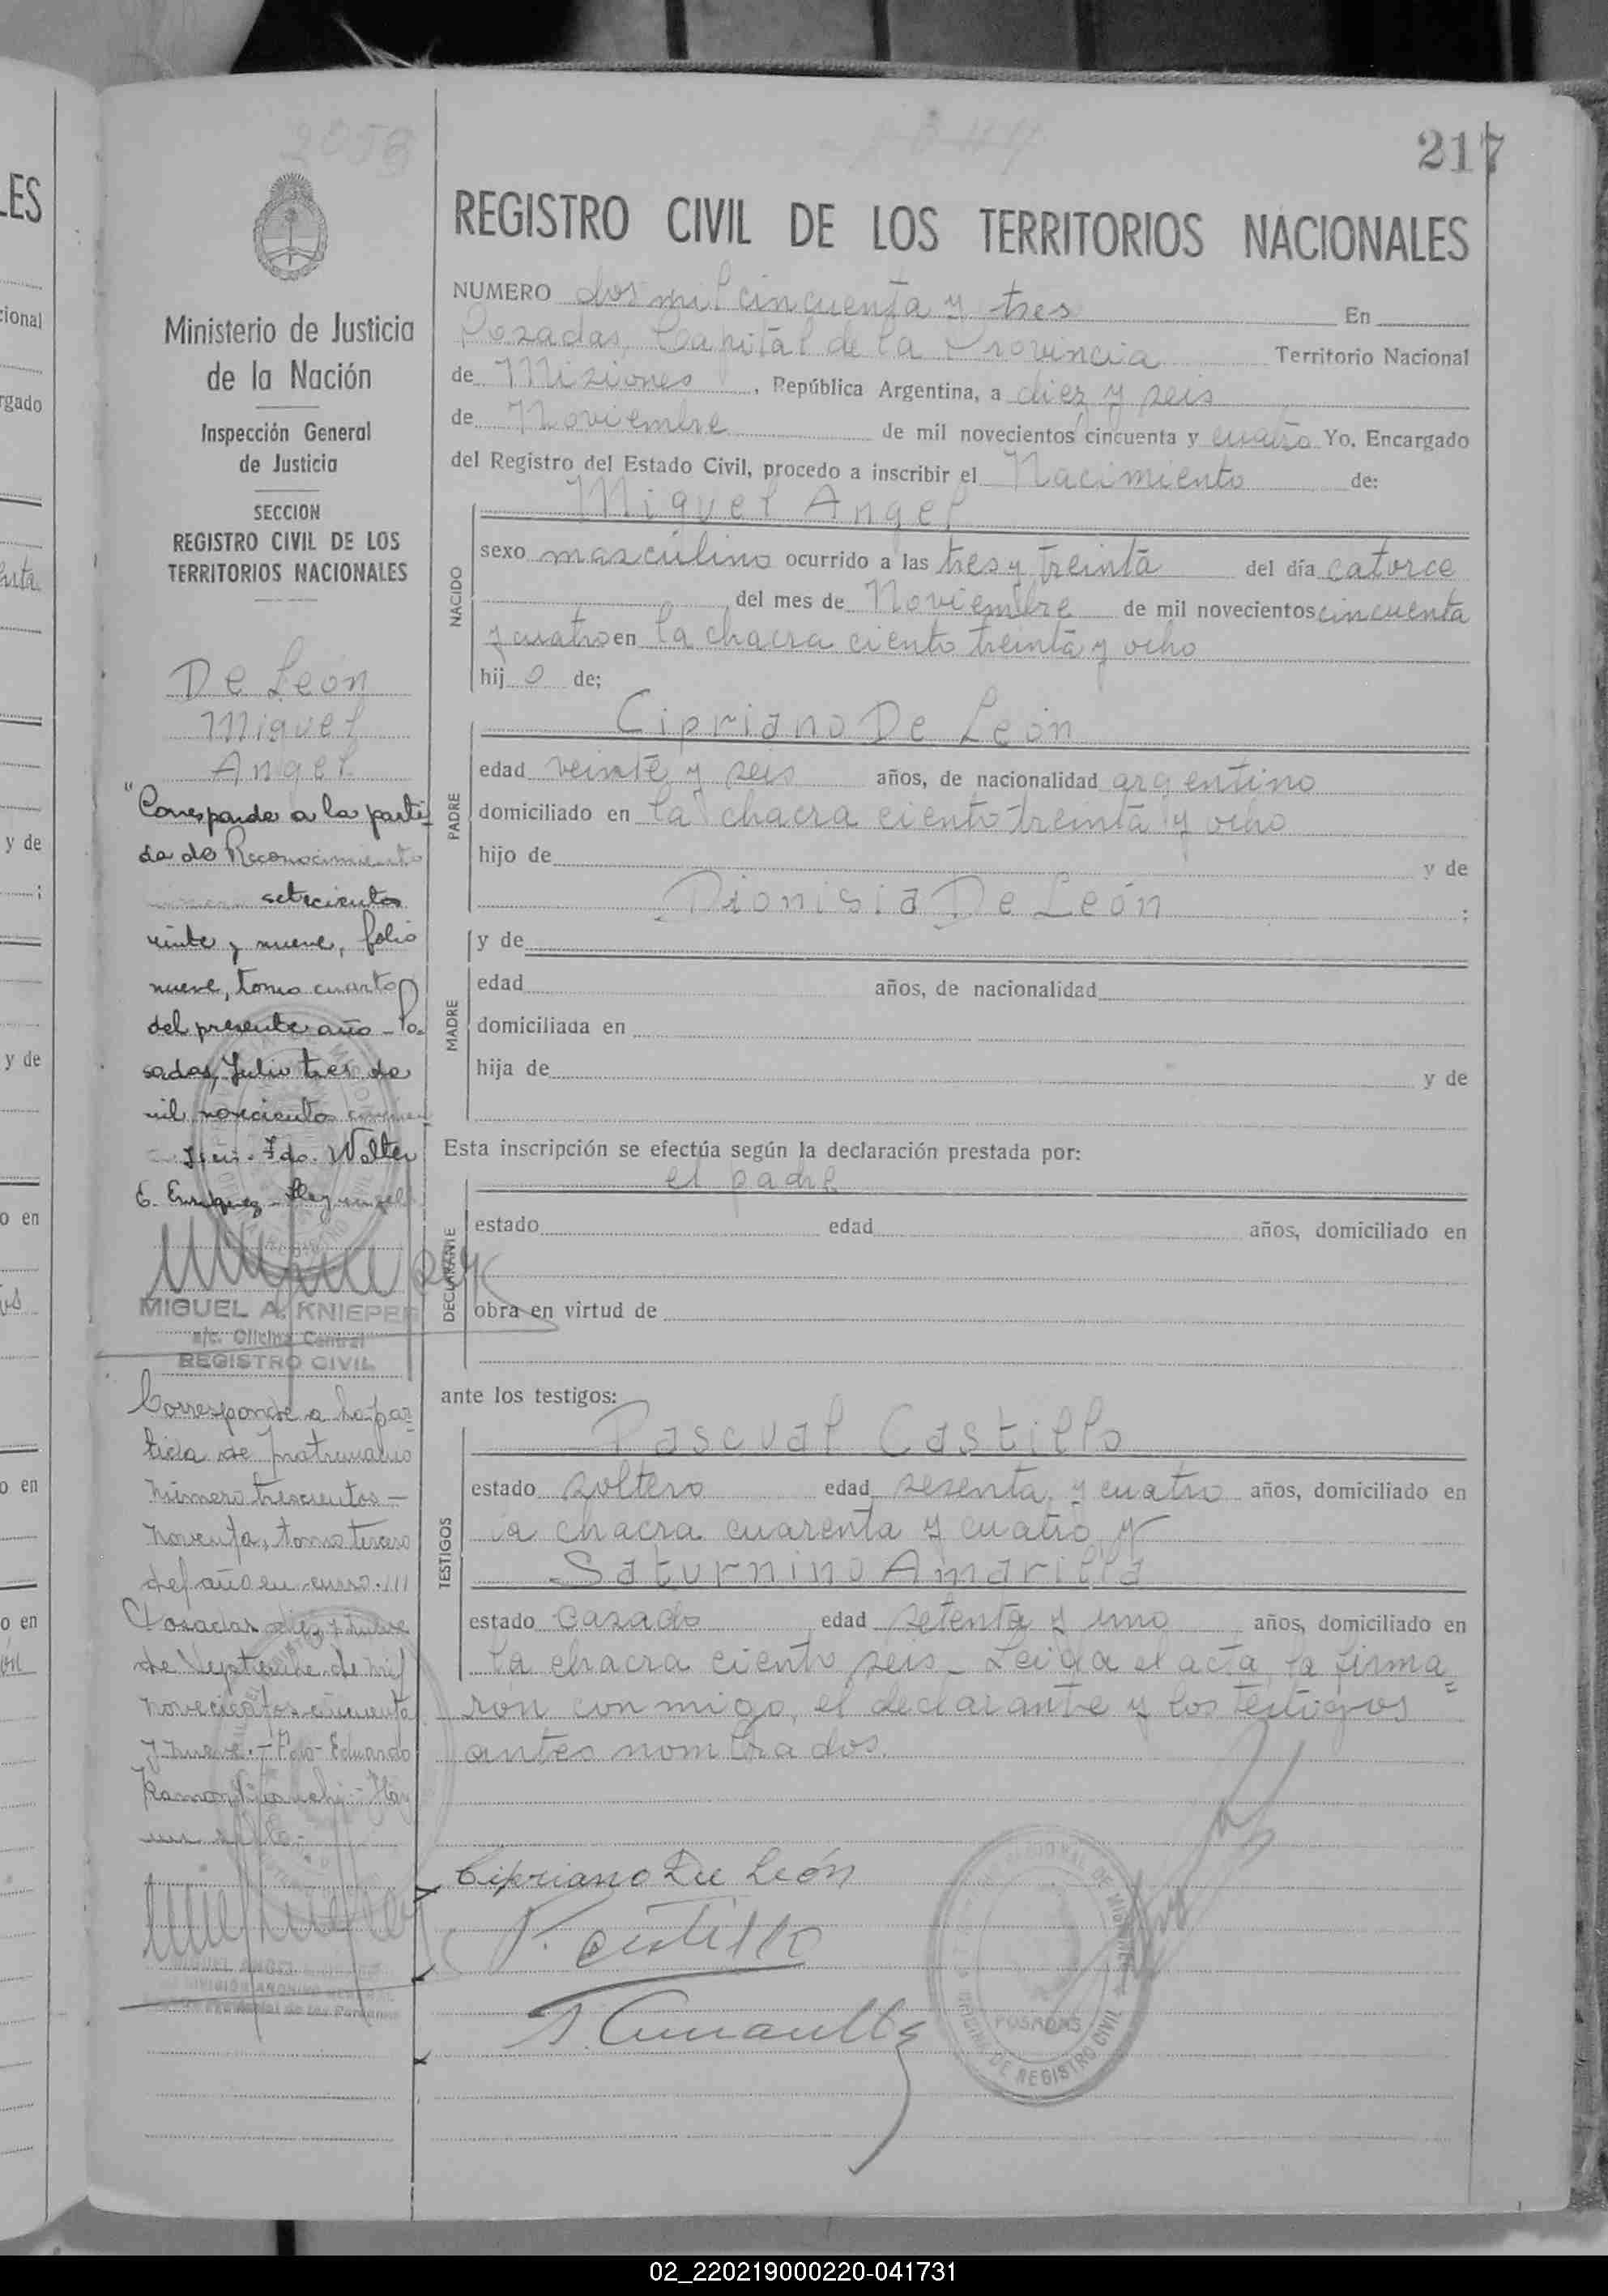 217
2053
REGISTRO CIVIL DE LOS TERRITORIOS NACIONALES
Ministerio de Justicia
de la Nación
Inspección General
de Justicia
SECCION
REGISTRO CIVIL DE LOS
TERRITORIOS NACIONALES
De León
Miguel
Angel
"Corresponde a la parti
da de Reconocimiento
setecientos
veinte y nueve, folio
nueve, tomo cuarto
del presente año - Po-
sadas, Julio tres de
mil novecientos
Fdo. Walter
E. Enriquez - Hay un sello
MIGUEL A. KNIEPER
a/c. Oficina Central
REGISTRO CIVIL
Corresponde a la par-
tida de matrimonio
número trescientos -
noventa, tomo tercero
del año en curso.
Posadas diez y nueve
de Septiembre de mil
novecientos cincuenta
y nueve. - Fdo - Eduardo
Ramon - Hay
un sello -
NUMERO dos mil cincuenta y tres En
Posadas, Capital de la Provincia Territorio Nacional
de Misiones, República Argentina, a diez y seis
de Noviembre de mil novecientos cincuenta y cuatro Yo, Encargado
del Registro del Estado Civil, procedo a inscribir el Nacimiento de:
Miguel Angel
NACIDO
sexo masculino ocurrido a las tres y treinta del día catorce
del mes de Noviembre de mil novecientos cincuenta
y cuatro en la chacra ciento treinta y ocho
hijo de;
Cipriano De León
PADRE
edad veinte y seis años, de nacionalidad argentino
domiciliado en la chacra ciento treinta y ocho
hijo de y de
Dionisia De León ;
y de
MADRE
edad años, de nacionalidad
domiciliada en
hija de y de
Esta inscripción se efectúa según la declaración prestada por:
el padre
DECLARANTE
estado edad años, domiciliado en
obra en virtud de
ante los testigos:
Pascual Castillo
TESTIGOS
estado soltero edad sesenta y cuatro años, domiciliado en
la chacra cuarenta y cuatro y
Saturnino Amarilla
estado casado edad setenta y uno años, domiciliado en
la chacra ciento seis - Leida el acta, la firma=
ron conmigo, el declarante y los testigos
antes nombrados.
Cipriano De León
P. Castillo
S. Amarilla
POSADAS
OFICINA DE REGISTRO CIVIL
02_220219000220-041731